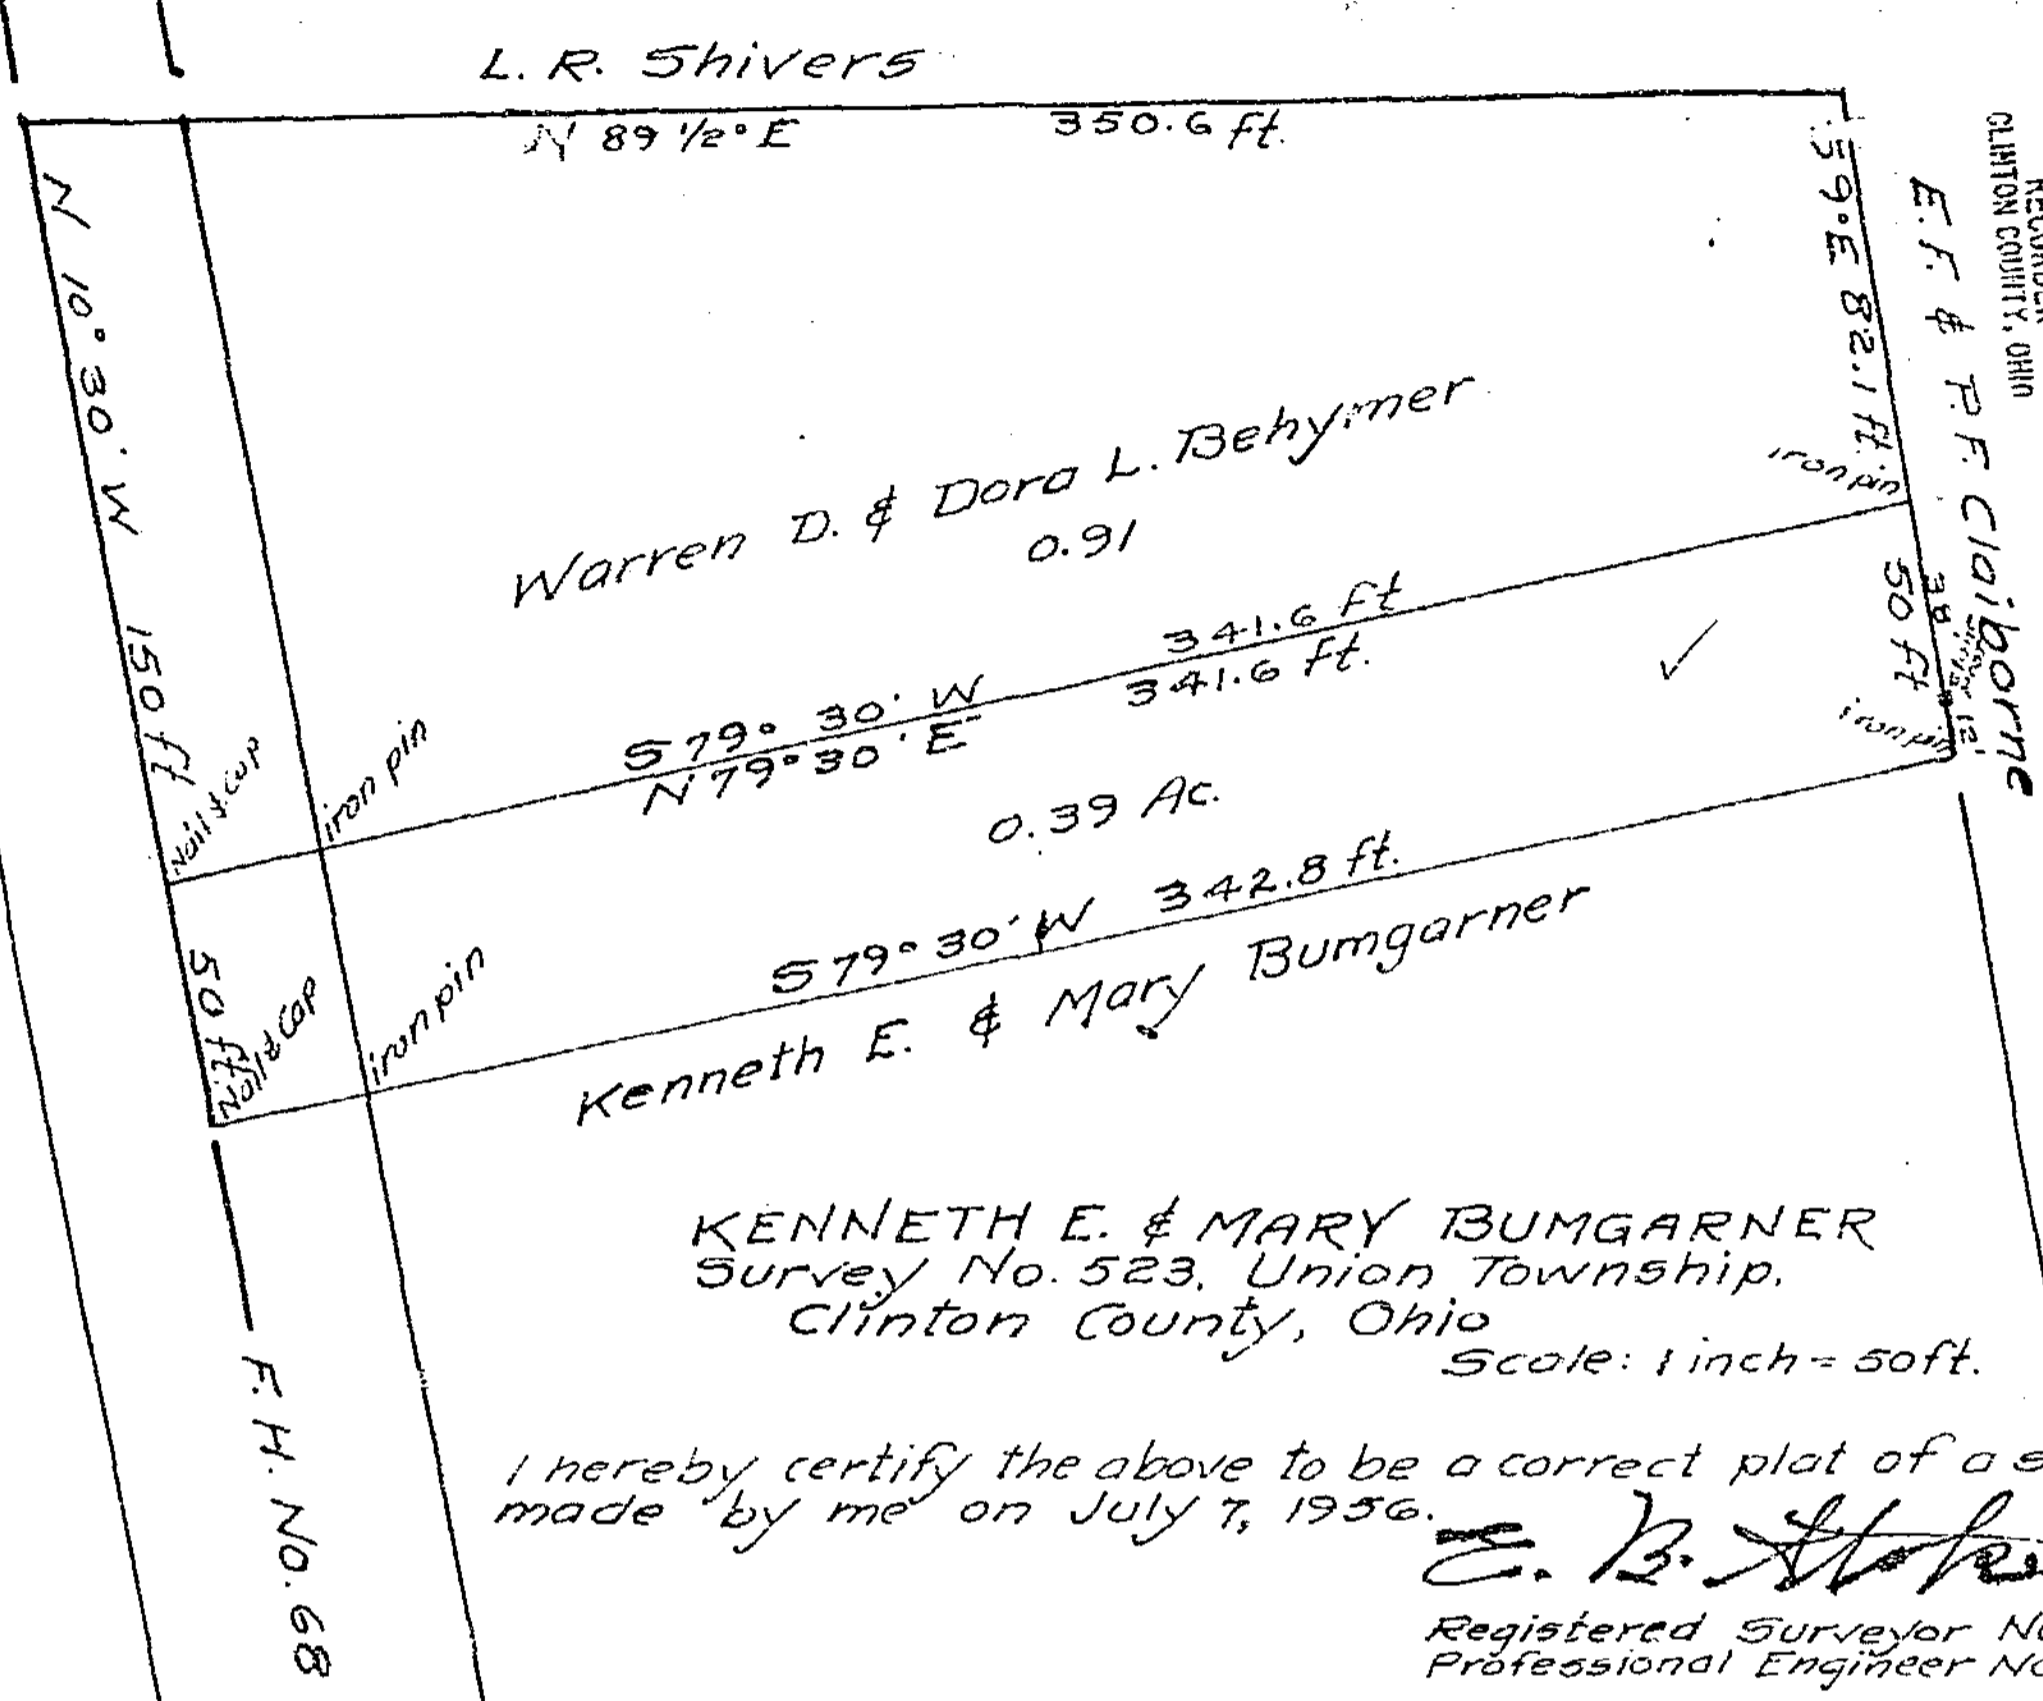 L. R. Shivers
N 89 1/2° E 350.6 ft.
N 10° 30' W 150 ft
S 9° E 82.1 ft.
E. F. & P. F. Claiborne
RECORDER
CLINTON COUNTY, OHIO
Warren D. & Dora L. Behymer
0.91
iron pin
50 ft
38
12'
iron pin
S 79° 30' W 341.6 ft
N 79° 30' E 341.6 ft.
Nail & Cap
iron pin
0.39 Ac.
S 79° 30' W 342.8 ft.
50 ft.
Nail & Cap
iron pin
Kenneth E. & Mary Bumgarner
KENNETH E. & MARY BUMGARNER
Survey No. 523, Union Township,
Clinton County, Ohio
Scale: 1 inch = 50 ft.
F. H. No. 68
I hereby certify the above to be a correct plat of a s
made by me on July 7, 1956.
E. B.
Registered Surveyor No
Professional Engineer No